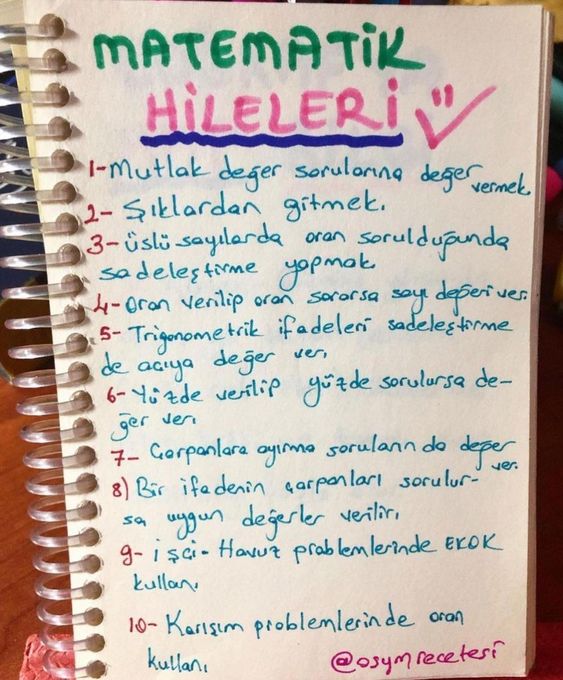 MATEMATİK
HİLELERİ
1-Mutlak değer sorularına değer vermek.
2- Şıklardan gitmek.
3- üslü sayılarda oran sorulduğunda
sadeleştirme yapmak.
4- Oran verilip oran sorarsa sayı değeri ver.
5- Trigonometrik ifadeleri sadeleştirme
de açıya değer ver.
6- Yüzde verilip yüzde sorulursa de-
ğer ver.
7- Çarpanlara ayırma sorularında değer ver.
8) Bir ifadenin çarpanları sorulur-
sa uygun değerler verilir.
9- işçi - Havuz problemlerinde EKOK
kullan.
10- Karışım problemlerinde oran
kullan.
@osymrecetesi